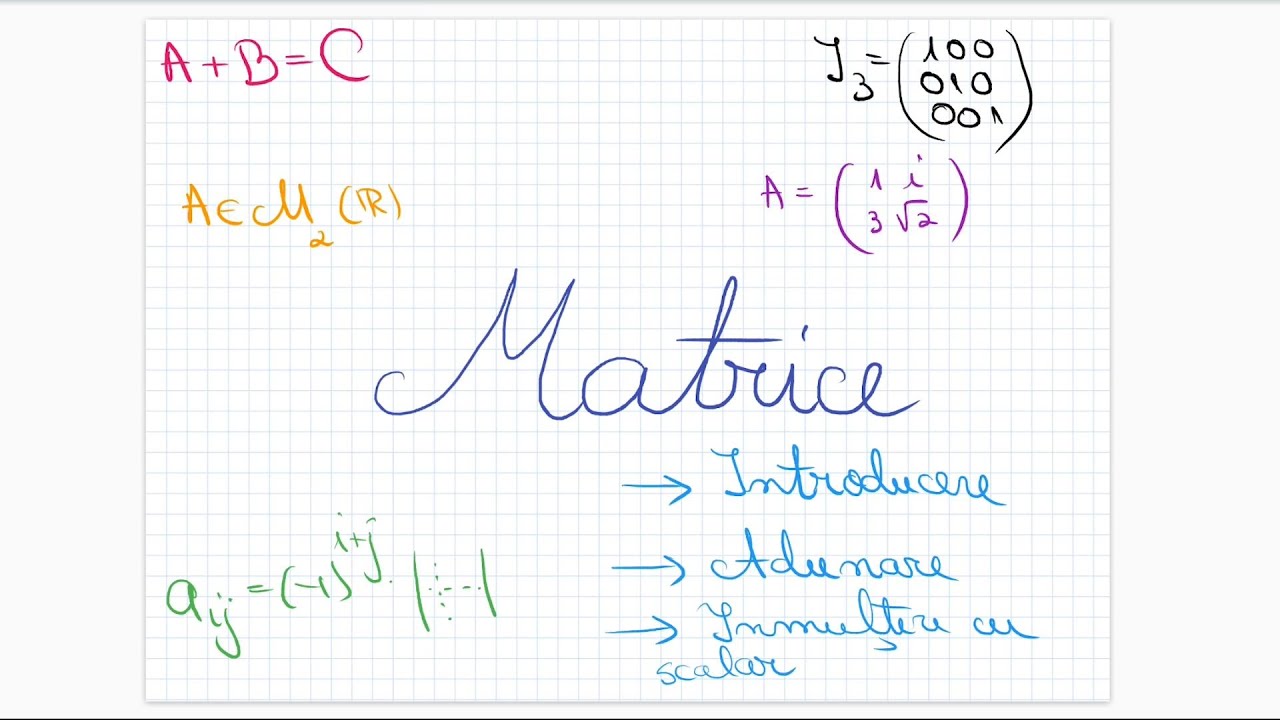 A + B = C
I₃ = (1 0 0
0 1 0
0 0 1)
A ∈ M₂ (ℝ)
A = (1 i
3 √2)
Matrice
→ Introducere
→ Adunare
→ Inmulțire cu
scalar
aᵢⱼ = (-1)^{i+j} · | |